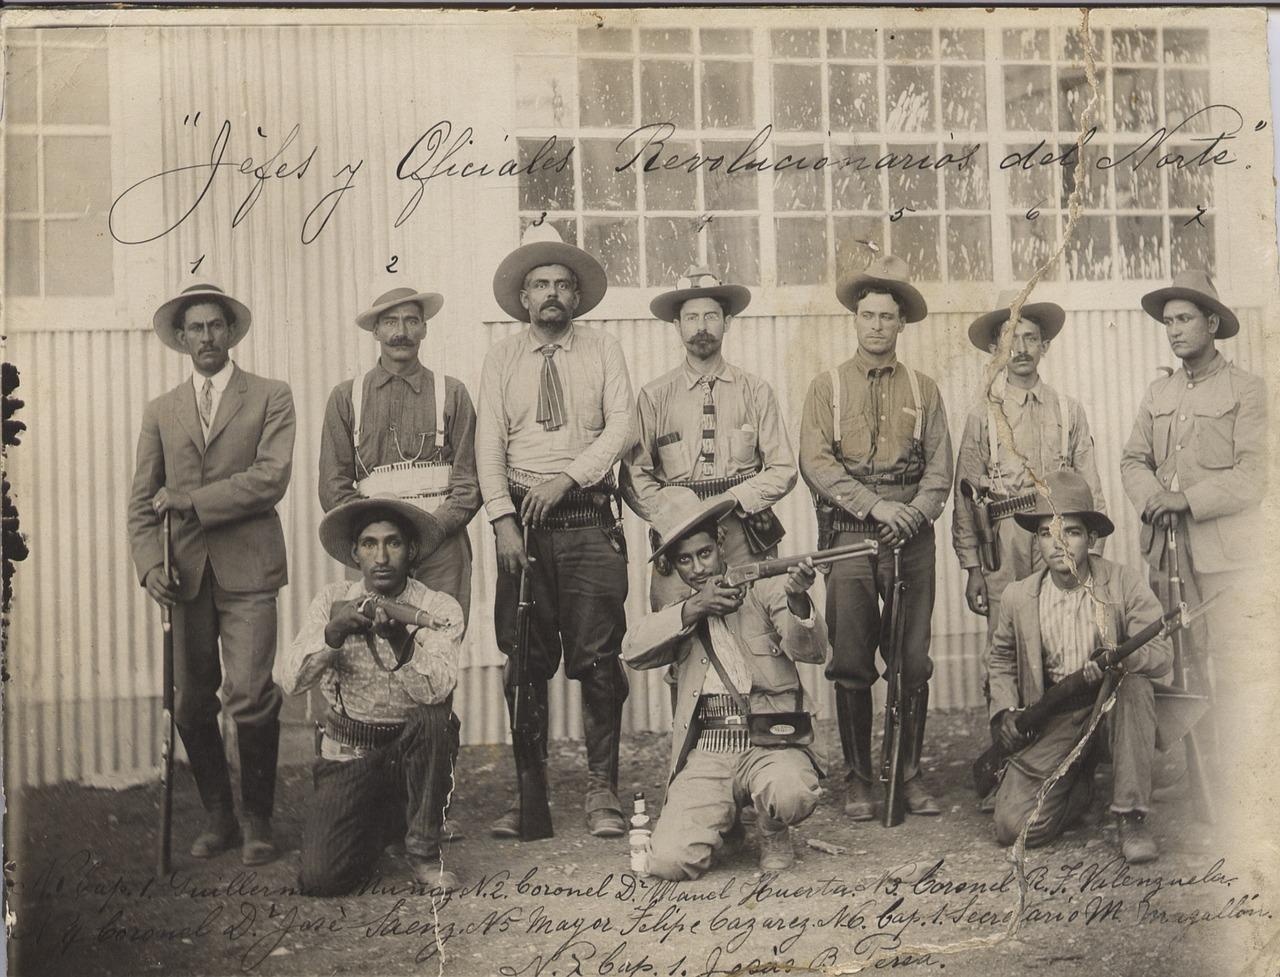 "Jèfes y Oficiales Revolucionarios del Norte."
1 2 3 4 5 6 7
N.1 Cap. 1. Guillermo Muñoz. N.2. Coronel Dr. Manuel Huerta. N3. Coronel R. F. Valenzuela.
N 4 Coronel Dr. Josè Saenz. N5 Mayor Felipe Cazarez. N6. Cap. 1. Secretario M
N. 7 Cap. 1. Jesùs B.